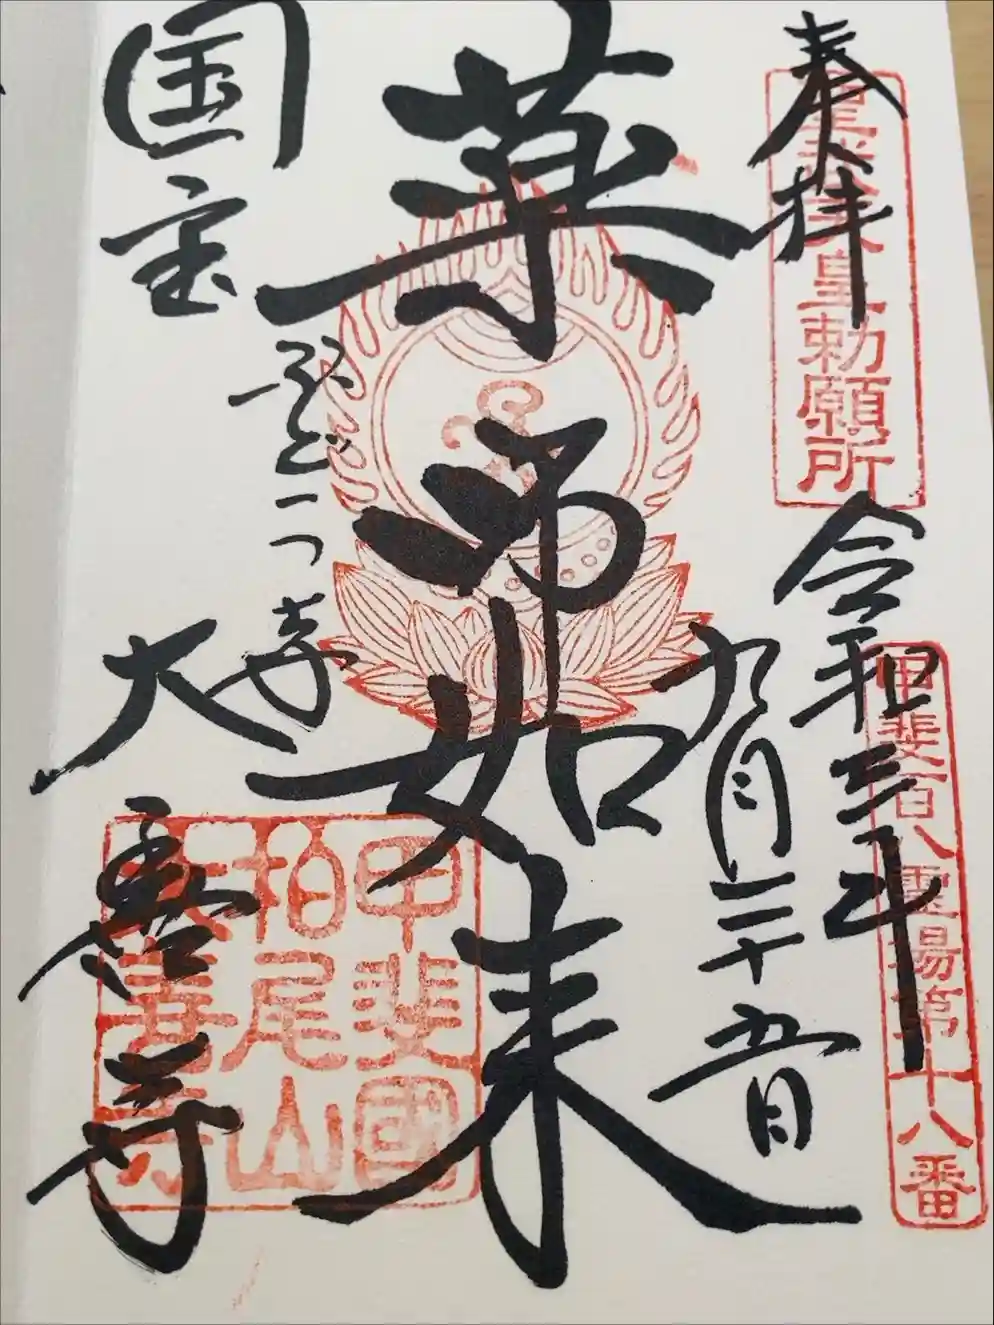 奉拝
聖武天皇勅願所
令和三年
甲斐百八霊場第十八番
九月二十五日
薬師如来
国宝
ぶどう寺
大善寺
甲斐國
柏尾山
大善寺